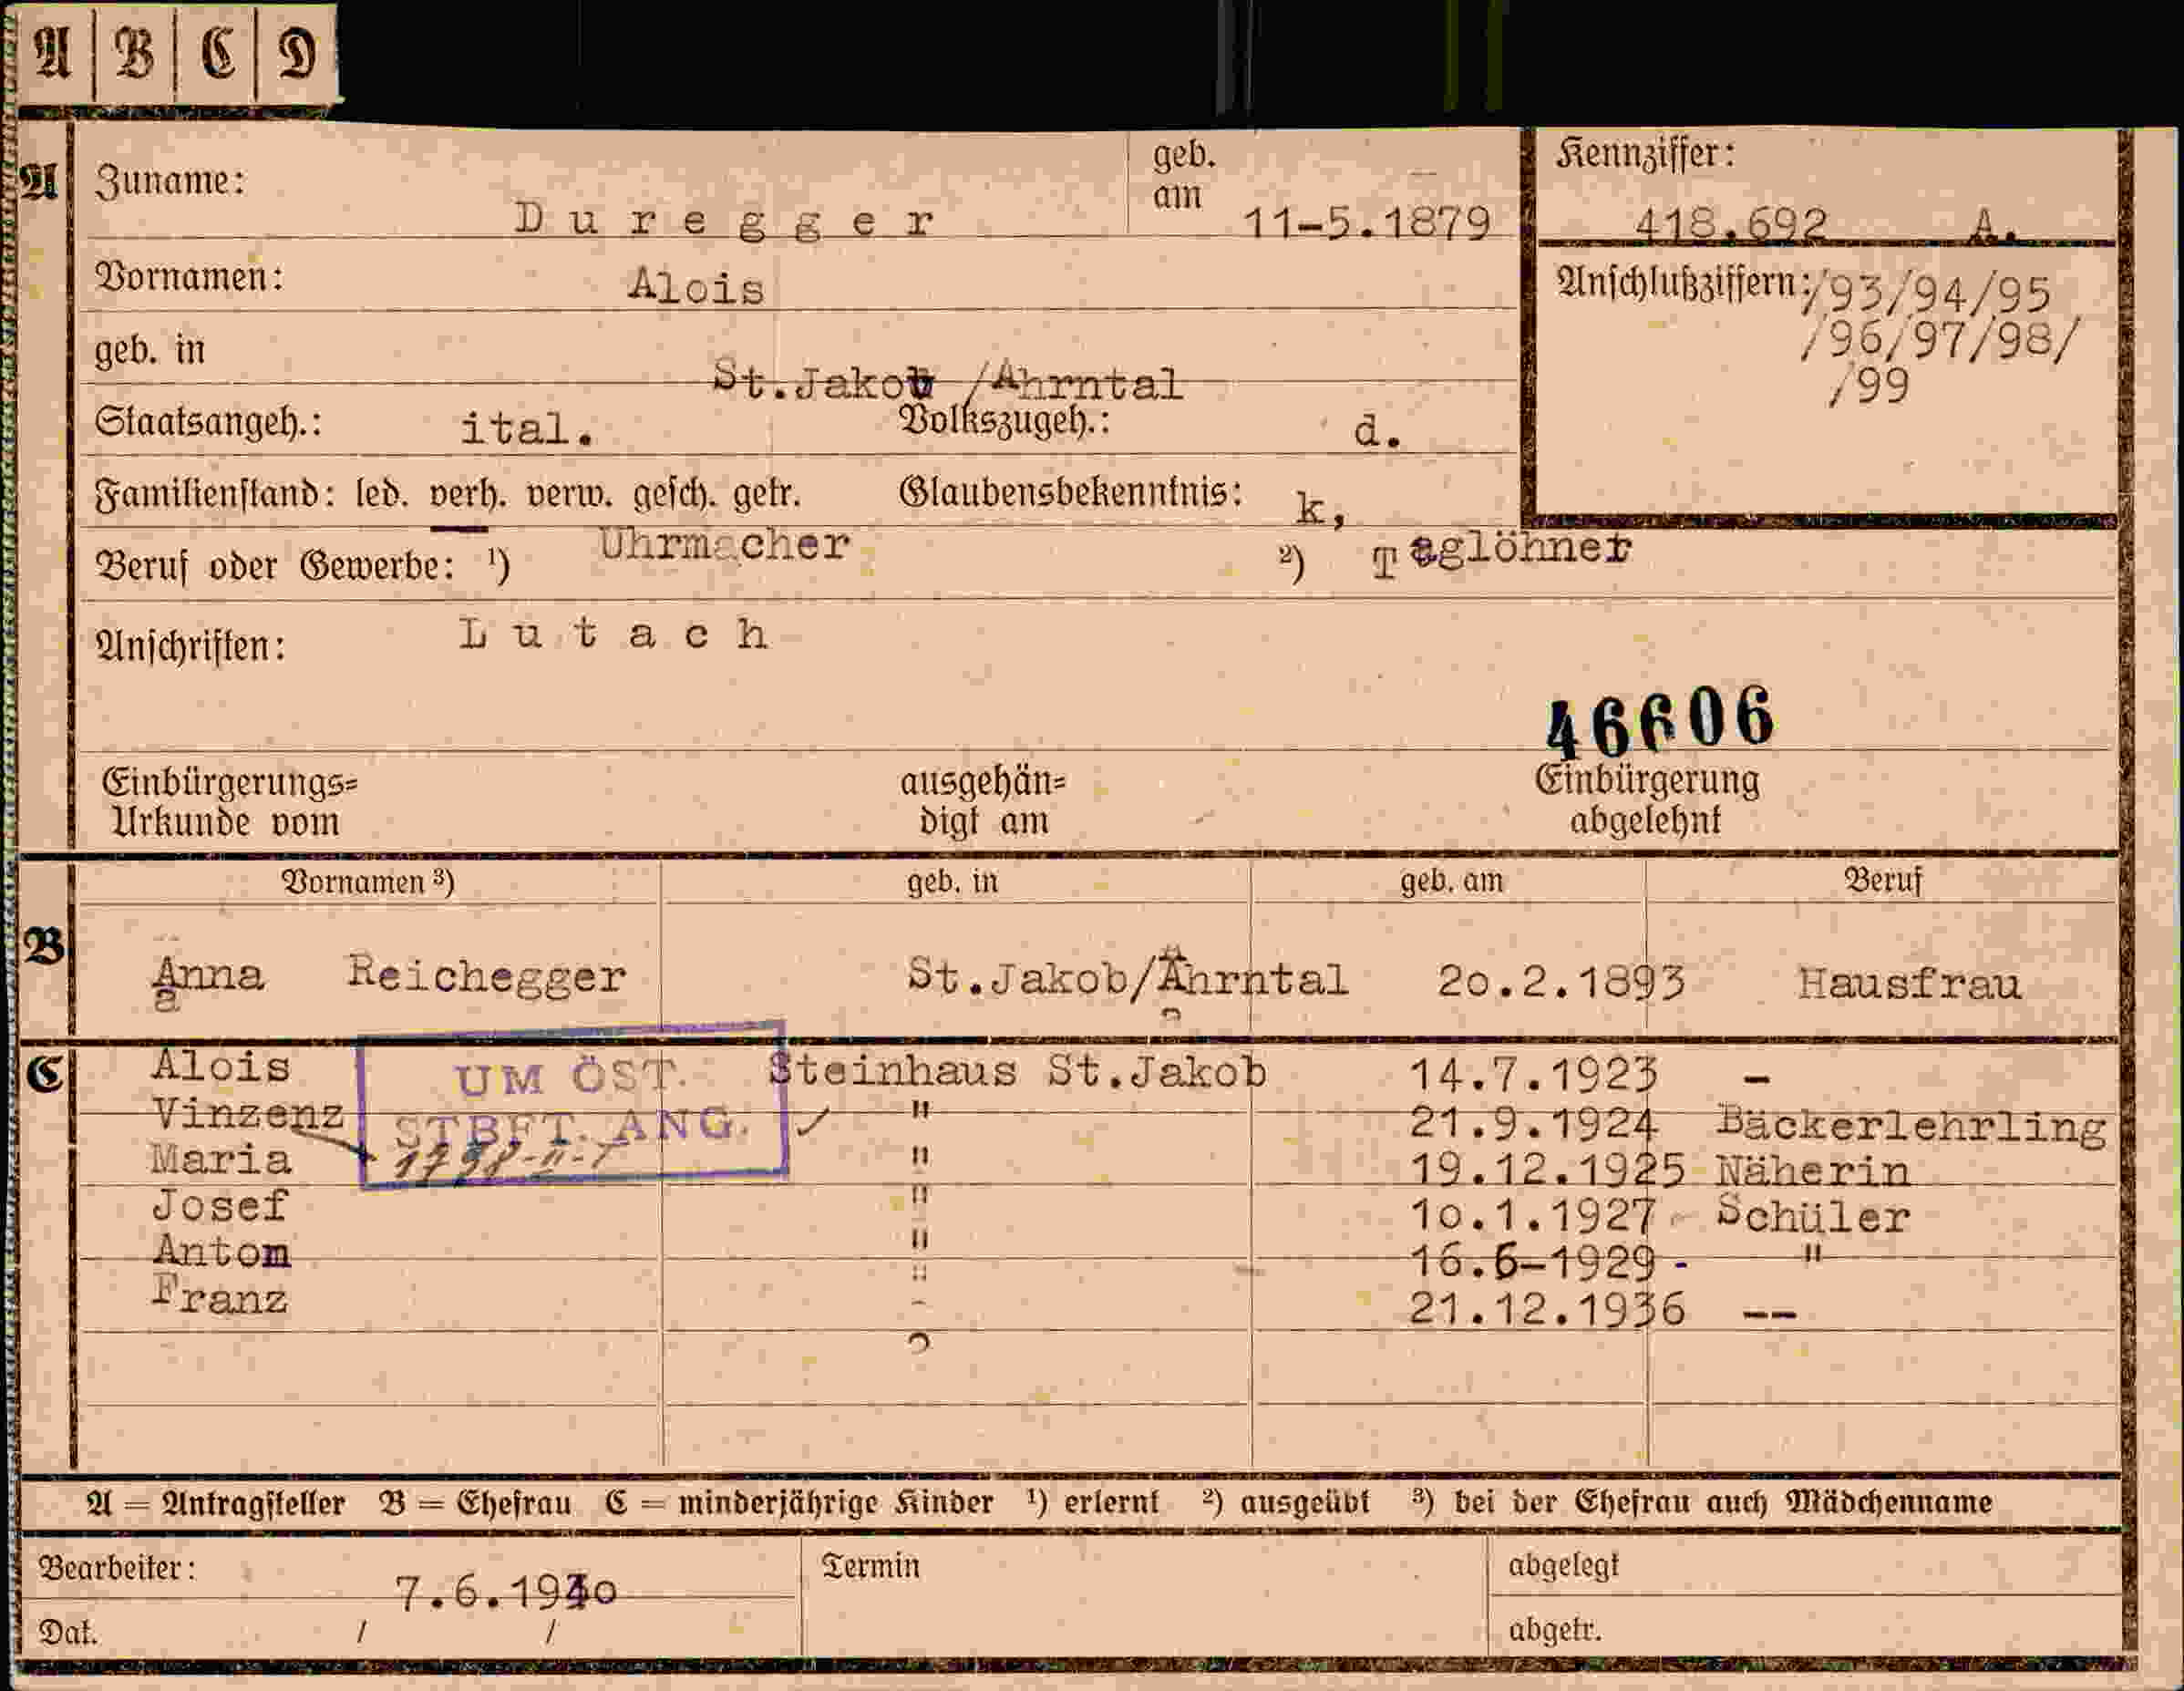 A B C D
A Zuname: Duregger geb. am 11-5.1879 Kennziffer: 418.692 A.
Vornamen: Alois Anschlußziffern: /93/94/95
/96/97/98/
/99
geb. in St.Jakob /Ahrntal
Staatsangeh.: ital. Volkszugeh.: d.
Familienstand: led. verh. verw. gesch. getr. Glaubensbekenntnis: k,
Beruf oder Gewerbe: ¹) Uhrmacher ²) Taglöhner
Anschriften: Lutach
46606
Einbürgerungs= ausgehän= Einbürgerung
Urkunde vom digt am abgelehnt
Vornamen ³) geb. in geb. am Beruf
B Anna Reichegger St.Jakob/Ahrntal 2o.2.1893 Hausfrau
C Alois UM ÖST. Steinhaus St.Jakob 14.7.1923 -
Vinzenz STBFT. ANG. " 21.9.1924 Bäckerlehrling
Maria " 19.12.1925 Näherin
Josef " 1o.1.1927 Schüler
Anton " 16.6-1929 - "
Franz " 21.12.1936 --
A = Antragsteller B = Ehefrau C = minderjährige Kinder ¹) erlernt ²) ausgeübt ³) bei der Ehefrau auch Mädchenname
Bearbeiter: 7.6.194o Termin abgelegt
Dat. / / abgetr.